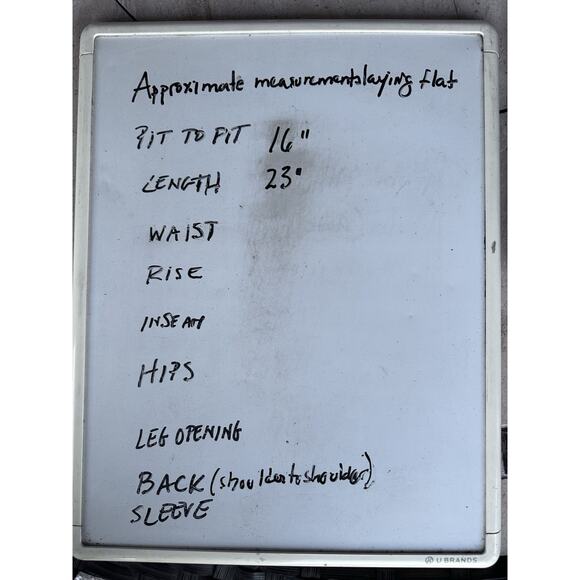 Approximate measurements laying flat
PIT TO PIT 16"
LENGTH 23"
WAIST
RISE
INSEAM
HIPS
LEG OPENING
BACK (shoulder to shoulder)
SLEEVE
U BRANDS